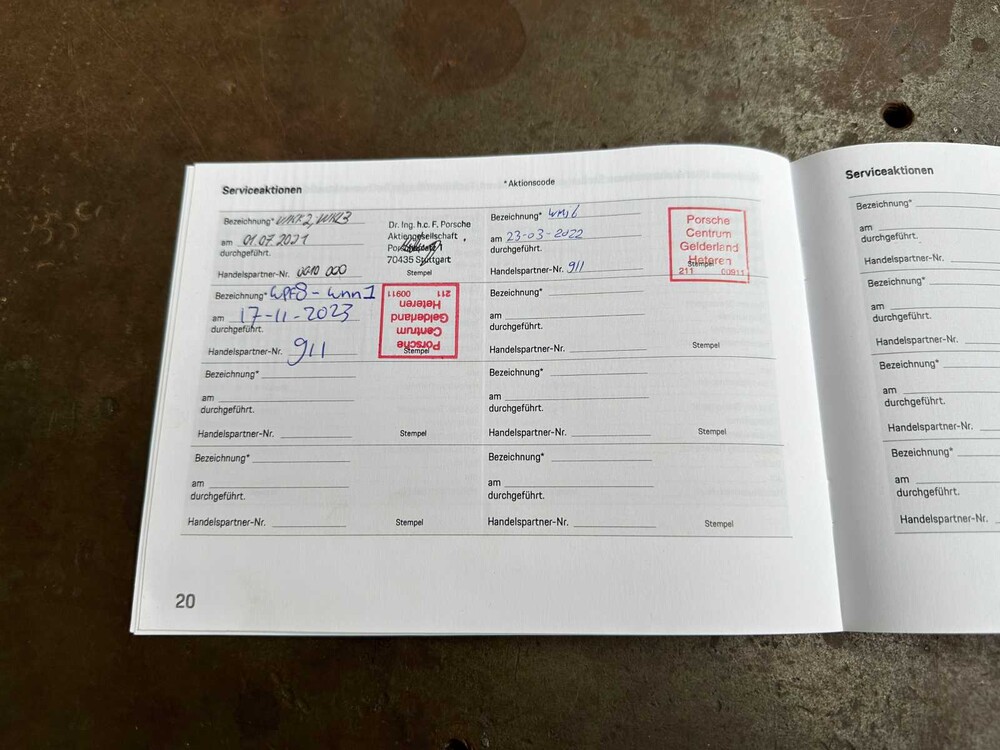 Serviceaktionen
*Aktionscode
Bezeichnung*
am 01.07.2021
durchgeführt.
Handelspartner-Nr. 0000 000
Dr. Ing. h.c. F. Porsche
Aktiengesellschaft
70435 Stuttgart
Stempel
Bezeichnung*
am 23-03-2022
durchgeführt.
Handelspartner-Nr. 911
Porsche
Centrum
Gelderland
Heteren
Stempel
211 00911
Bezeichnung* WPF8 - Wnn1
am 17-11-2023
durchgeführt.
Handelspartner-Nr. 911
Porsche
Centrum
Gelderland
Heteren
211 00911
Stempel
Bezeichnung*
am
durchgeführt.
Handelspartner-Nr.
Stempel
Bezeichnung*
am
durchgeführt.
Handelspartner-Nr.
Stempel
Bezeichnung*
am
durchgeführt.
Handelspartner-Nr.
Stempel
Bezeichnung*
am
durchgeführt.
Handelspartner-Nr.
Stempel
Bezeichnung*
am
durchgeführt.
Handelspartner-Nr.
Stempel
20
Serviceaktionen
Bezeichnung*
am
durchgeführt.
Handelspartner-Nr.
Bezeichnung*
am
durchgeführt.
Handelspartner-Nr.
Bezeichnung*
am
durchgeführt.
Handelspartner-Nr.
Bezeichnung*
am
durchgeführt.
Handelspartner-Nr.